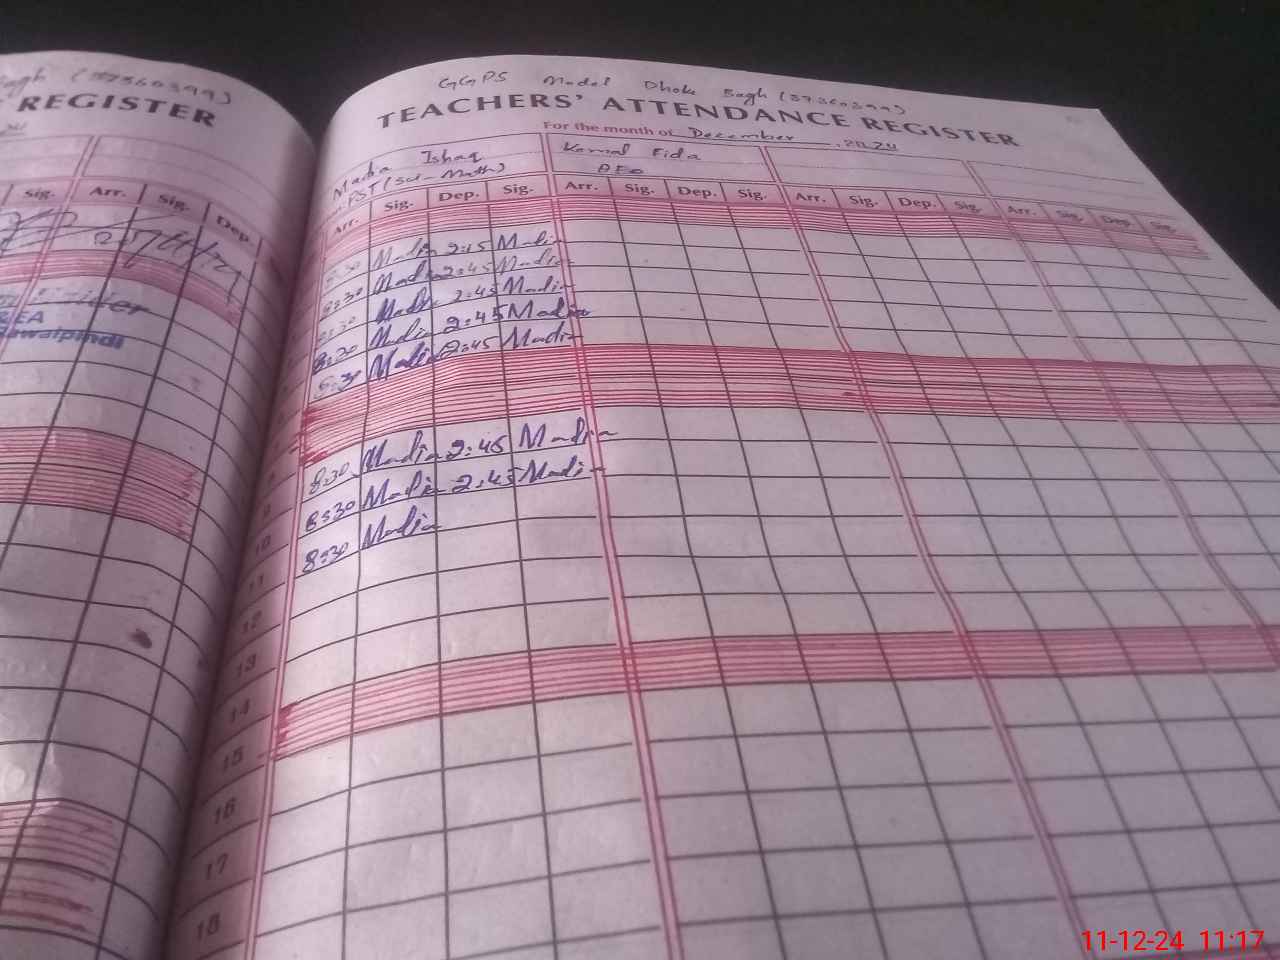 Bagh (37360399)
REGISTER
Sig. Arr. Sig. Dep.
GGPS Model Dhoke Bagh (37360399)
TEACHERS' ATTENDANCE REGISTER
For the month of December, 2024
Madia Ishaq
PST (Sci-Math)
Komal Fida
AEO
Arr. Sig. Dep. Sig. Arr. Sig. Dep. Sig. Arr. Sig. Dep. Sig. Arr. Sig. Dep. Sig.
8:30 Madia 2:15 Madia
8:30 Madia 2:45 Madia
8:30 Madia 2:45 Madia
8:30 Madia 2:45 Madia
8:30 Madia 2:45 Madia
8:30 Madia 2:45 Madia
9 8:30 Madia 2:45 Madia
10 8:30 Madia
11
12
13
14
15
16
17
18
11-12-24 11:17